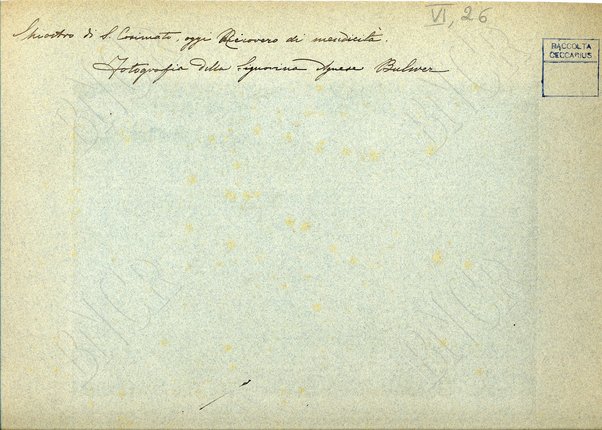 VI, 26
Chiostro di S. Cosimato, oggi Ricovero di mendicità.
RACCOLTA
CECCARIUS
Fotografia della Signorina Agnese Bulwer
BNCR
BNCR
BNCR
BNCR